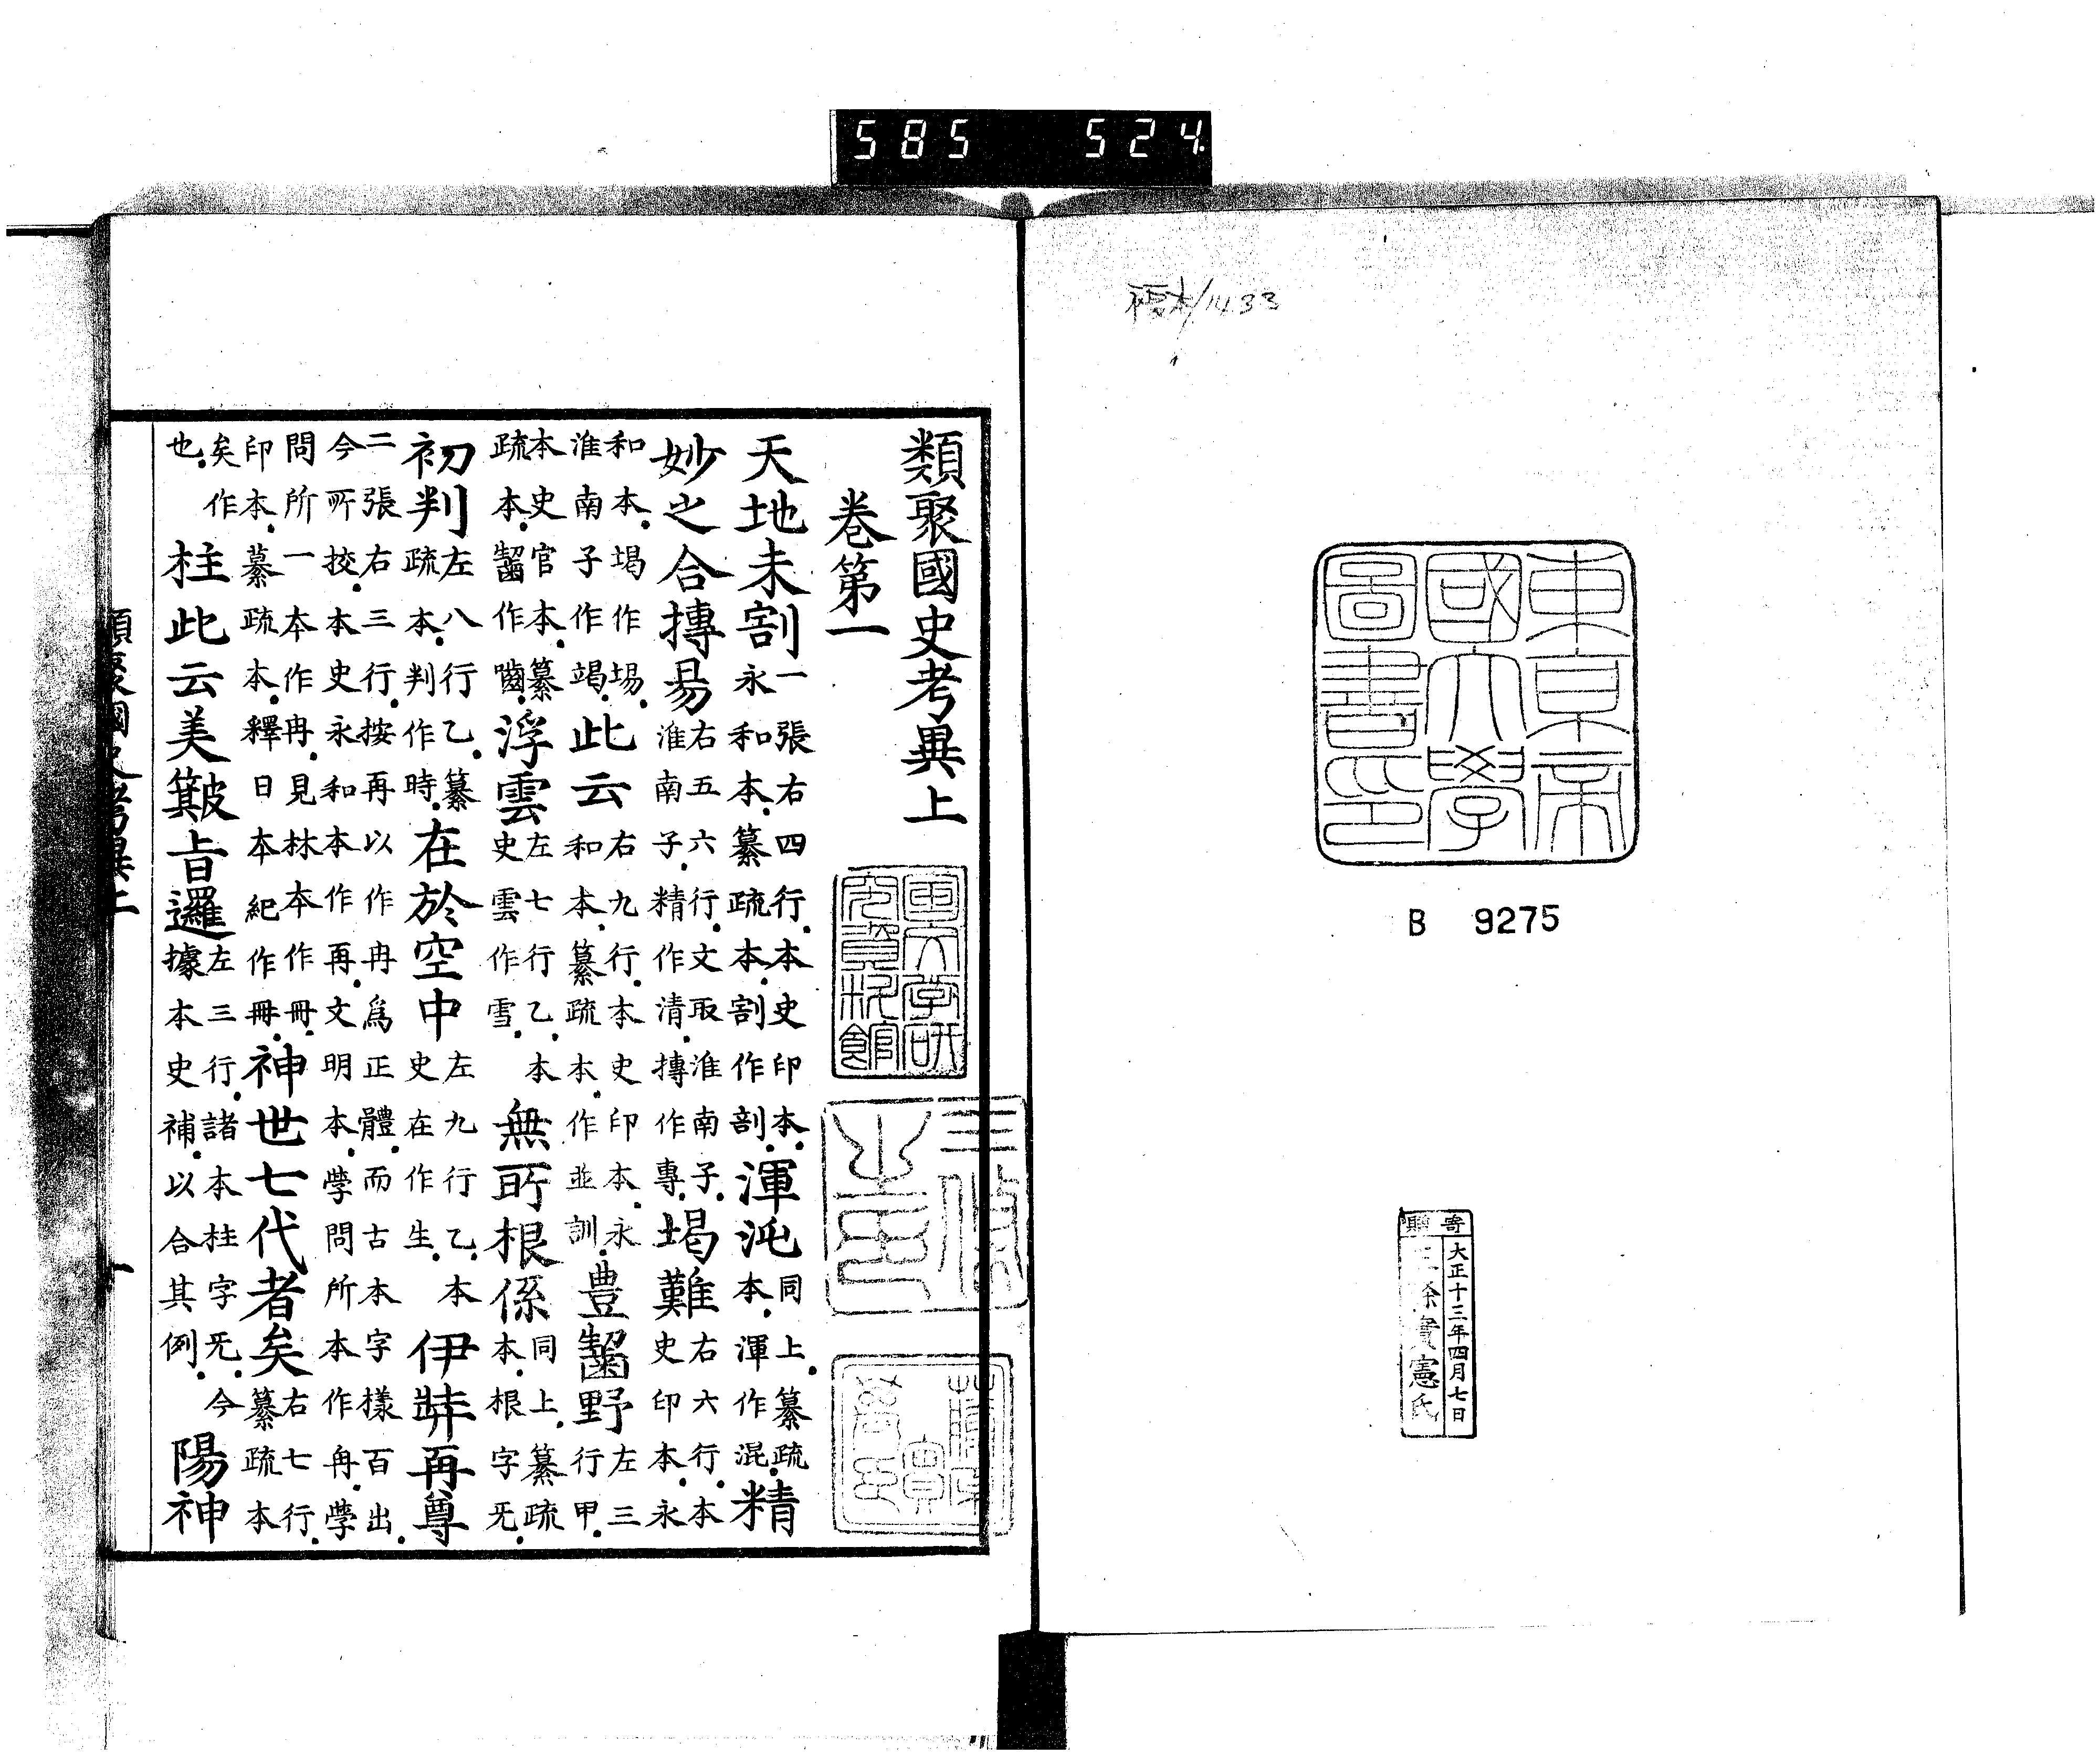 福本/1433
585 524
東京帝
國大學
圖書印
B 9275
寄贈
大正十三年四月七日
三條實憲氏
類聚國史考異上
卷第一
天地未割一張右四行。本史印本。永和本。纂疏本。割作剖。渾沌同上。纂疏本。渾作混。精
妙之合摶昜右五六行。文取淮南子。淮南子。精作清。摶作專。堨難右六行。本史印本。永
和本。堨作場。淮南子作竭。此云右九行。本史印本。永和本。纂疏本。作並訓。豊齧野左三行甲。
本史官本。纂疏本。齧作嚙。浮雲左七行乙。本史雲作雪。無所根係同上。纂疏本。根字旡。
初判左八行乙。纂疏本。判作時。在於空中左九行乙。本史在作生。伊弉再尊
二張右三行。按再以作冉爲正體。而古本字樣百出。今所挍。本史永和本作再。文明本。學問所本作冉。學
問所一本作冉。見林本作冊。印本。纂疏本。釋日本紀作冊。神世七代者矣右七行。纂疏本
矣作也。柱此云美簸旨邏左三行。諸本柱字旡。今據本史補。以合其例。陽神
類聚國史考異上 一